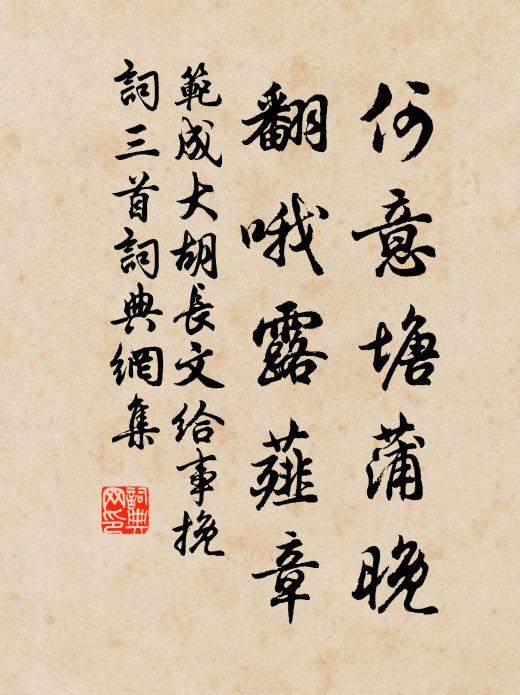 何意塘蒲晚
翻哦露薤章
範成大胡長文給事挽
詞三首詞典網集
詞典
网印